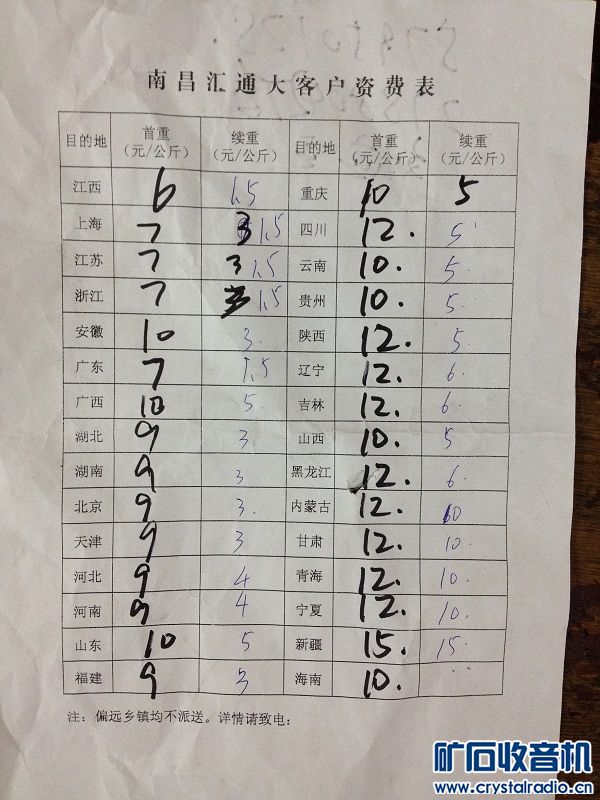 南昌汇通大客户资费表
目的地 首重（元/公斤） 续重（元/公斤） 目的地 首重（元/公斤） 续重（元/公斤）
江西 6 1.5 重庆 10 5
上海 7 3 1.5 四川 12. 5
江苏 7 3 1.5 云南 10. 5.
浙江 7 3 1.5 贵州 10. 5.
安徽 10 3. 陕西 12. 5
广东 7 1.5 辽宁 12. 6.
广西 10 5. 吉林 12. 6.
湖北 9 3. 山西 10. 5
湖南 9 3 黑龙江 12. 6.
北京 9 3. 内蒙古 12. 10
天津 9 3 甘肃 12. 10.
河北 9 4 青海 12. 10.
河南 9 4 宁夏 12. 10.
山东 10 5 新疆 15. 15.
福建 9 3 海南 10.
注：偏远乡镇均不派送。详情请致电：
矿石收音机
www.crystalradio.cn